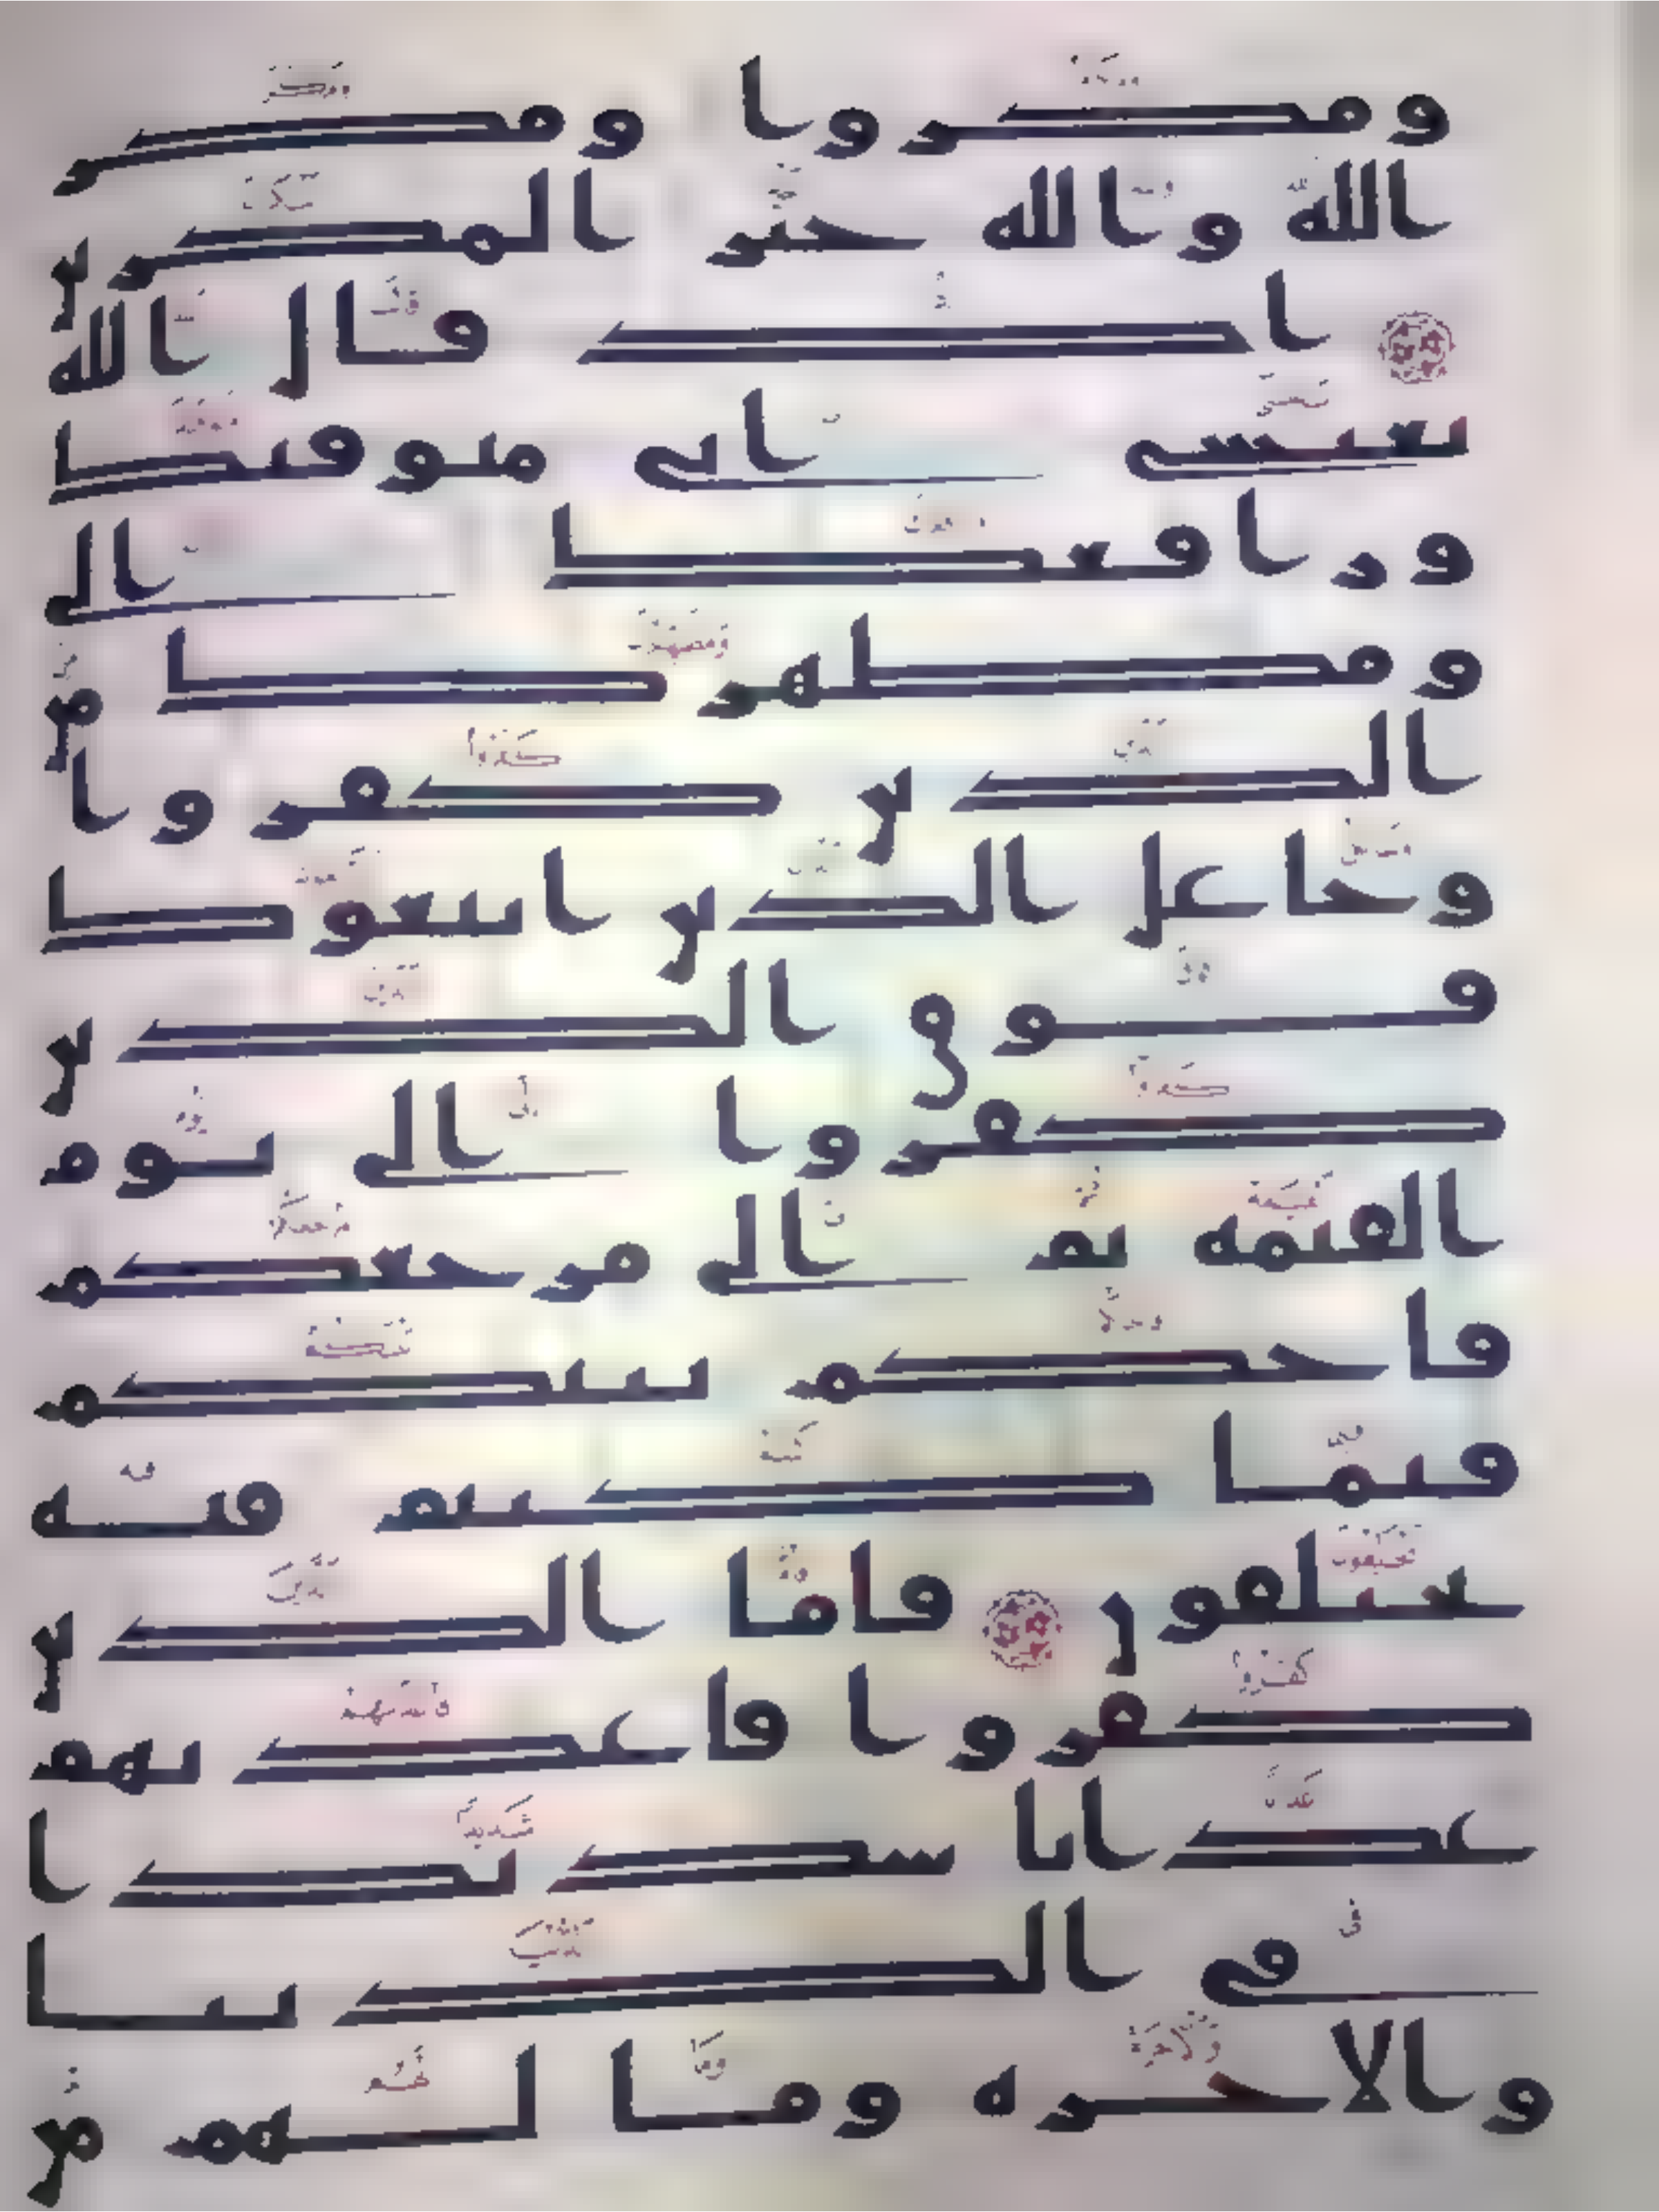 ومكروا ومكر
الله والله خير المكرين
اذ قال الله
يعيسى انى متوفيك
ورافعك الى
ومطهرك من
الذين كفروا
وجاعل الذين اتبعوك
فوق الذين
كفروا الى يوم
القيمه ثم الى مرجعكم
فاحكم بينكم
فيما كنتم فيه
تختلفون فاما الذين
كفروا فاعذبهم
عذابا شديدا
فى الدنيا
والاخره وما لهم من